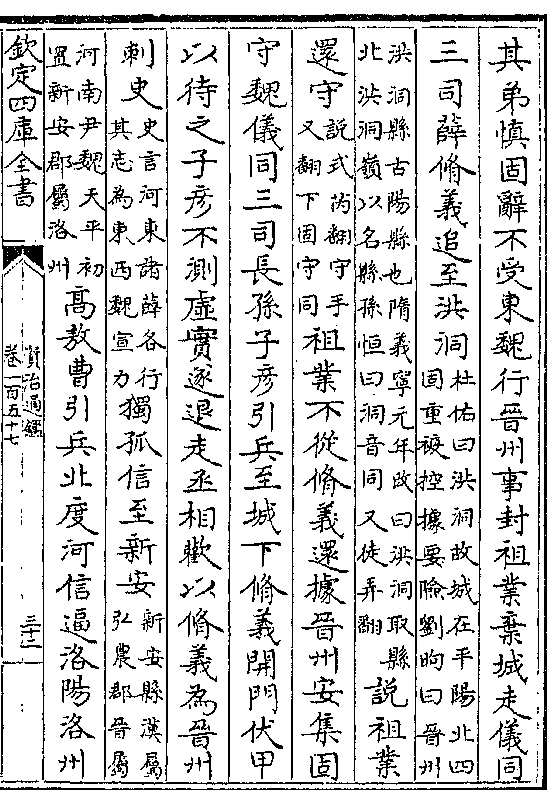 其弟慎固辭不受東魏行晉州事封祖業棄城走儀同
三司薛脩義追至洪洞杜佑曰洪洞故城在平陽北四
固重複控據要險劉昫曰晉州
洪洞縣古陽縣也隋義寧元年改曰洪洞取縣
北洪洞嶺以名縣孫恒曰洞音同又徒弄翻說祖業
還守說式芮翻守手
又翻下固守同祖業不從脩義還據晉州安集固
守魏儀同三司長孫子彦引兵至城下脩義開門伏甲
以待之子彦不測虚實遂退走丞相歡以脩義為晉州
刺史史言河東諸薛各行
其志為東西魏宣力獨孤信至新安新安縣漢屬
弘農郡晉屬
河南尹魏天平初
置新安郡屬洛州高敖曹引兵北度河信逼洛陽洛州
欽定四庫全書
資治通鑑
卷一百五十七
三十二